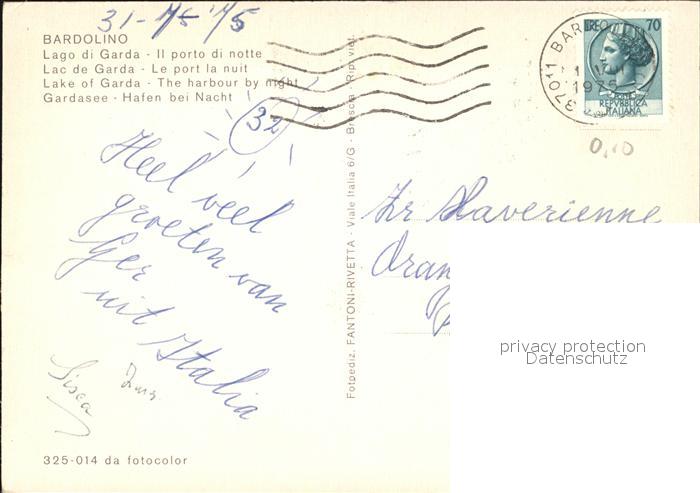 31-75 '75
BARDOLINO
Lago di Garda - Il porto di notte
Lac de Garda - Le port la nuit
Lake of Garda - The harbour by night
Gardasee - Hafen bei Nacht
32
Heel veel
groeten van
Ger
uit Italia
325-014 da fotocolor
Fotoediz. FANTONI-RIVETTA - Viale Italia 6/G - Brescia - Rip. viet.
37011 BAR
1975
70
REPVBBLICA
ITALIANA
0,10
Zr Xaverienne
Oran
privacy protection
Datenschutz